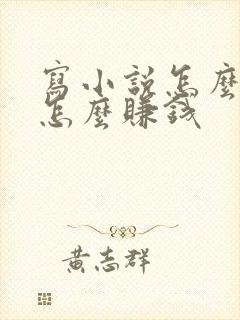 寫小説怎麼
怎麼賺錢
黃志群